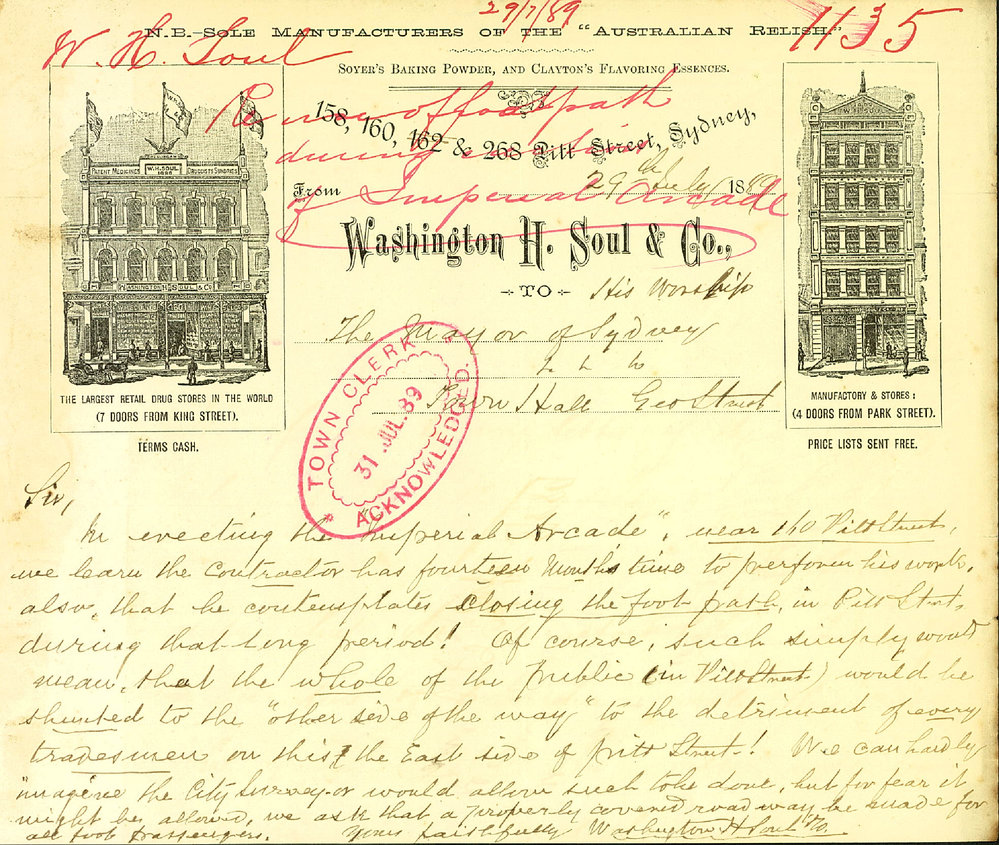 29/7/89
N.B.–Sole Manufacturers of the "Australian Relish."
1135
W. H. Soul
Soyer's Baking Powder, and Clayton's Flavoring Essences.
Re
of footpath
158, 160, 162 & 268 Pitt Street, Sydney,
during
29th July 1889
From
of Imperial Arcade
Washington H. Soul & Co.,
TO His Worship
The Mayor of Sydney
Town Hall Geo Street
PATENT MEDICINES
W.H. SOUL
DRUGGISTS SUNDRIES
WASHINGTON H. SOUL & CO
THE LARGEST RETAIL DRUG STORES IN THE WORLD
(7 DOORS FROM KING STREET).
TERMS CASH.
MANUFACTORY & STORES:
(4 DOORS FROM PARK STREET).
PRICE LISTS SENT FREE.
TOWN CLERK
31 JUL. 89
ACKNOWLEDGED.
Sir,
In erecting the "Imperial Arcade", near 160 Pitt Street,
we learn the Contractor has fourteen months time to perform his work,
also, that he contemplates closing the foot path, in Pitt Street,
during that long period! Of course, such simply would
mean, that the whole of the public (in Pitt Street) would be
shunted to the "other side of the way" to the detriment of every
tradesmen on this, the East side of Pitt Street! We can hardly
imagine the City Surveyor would allow such to be done, but for fear it
might be, allowed, we ask that a properly covered roadway be made for
all foot passengers. Yours faithfully Washington H Soul & Co.